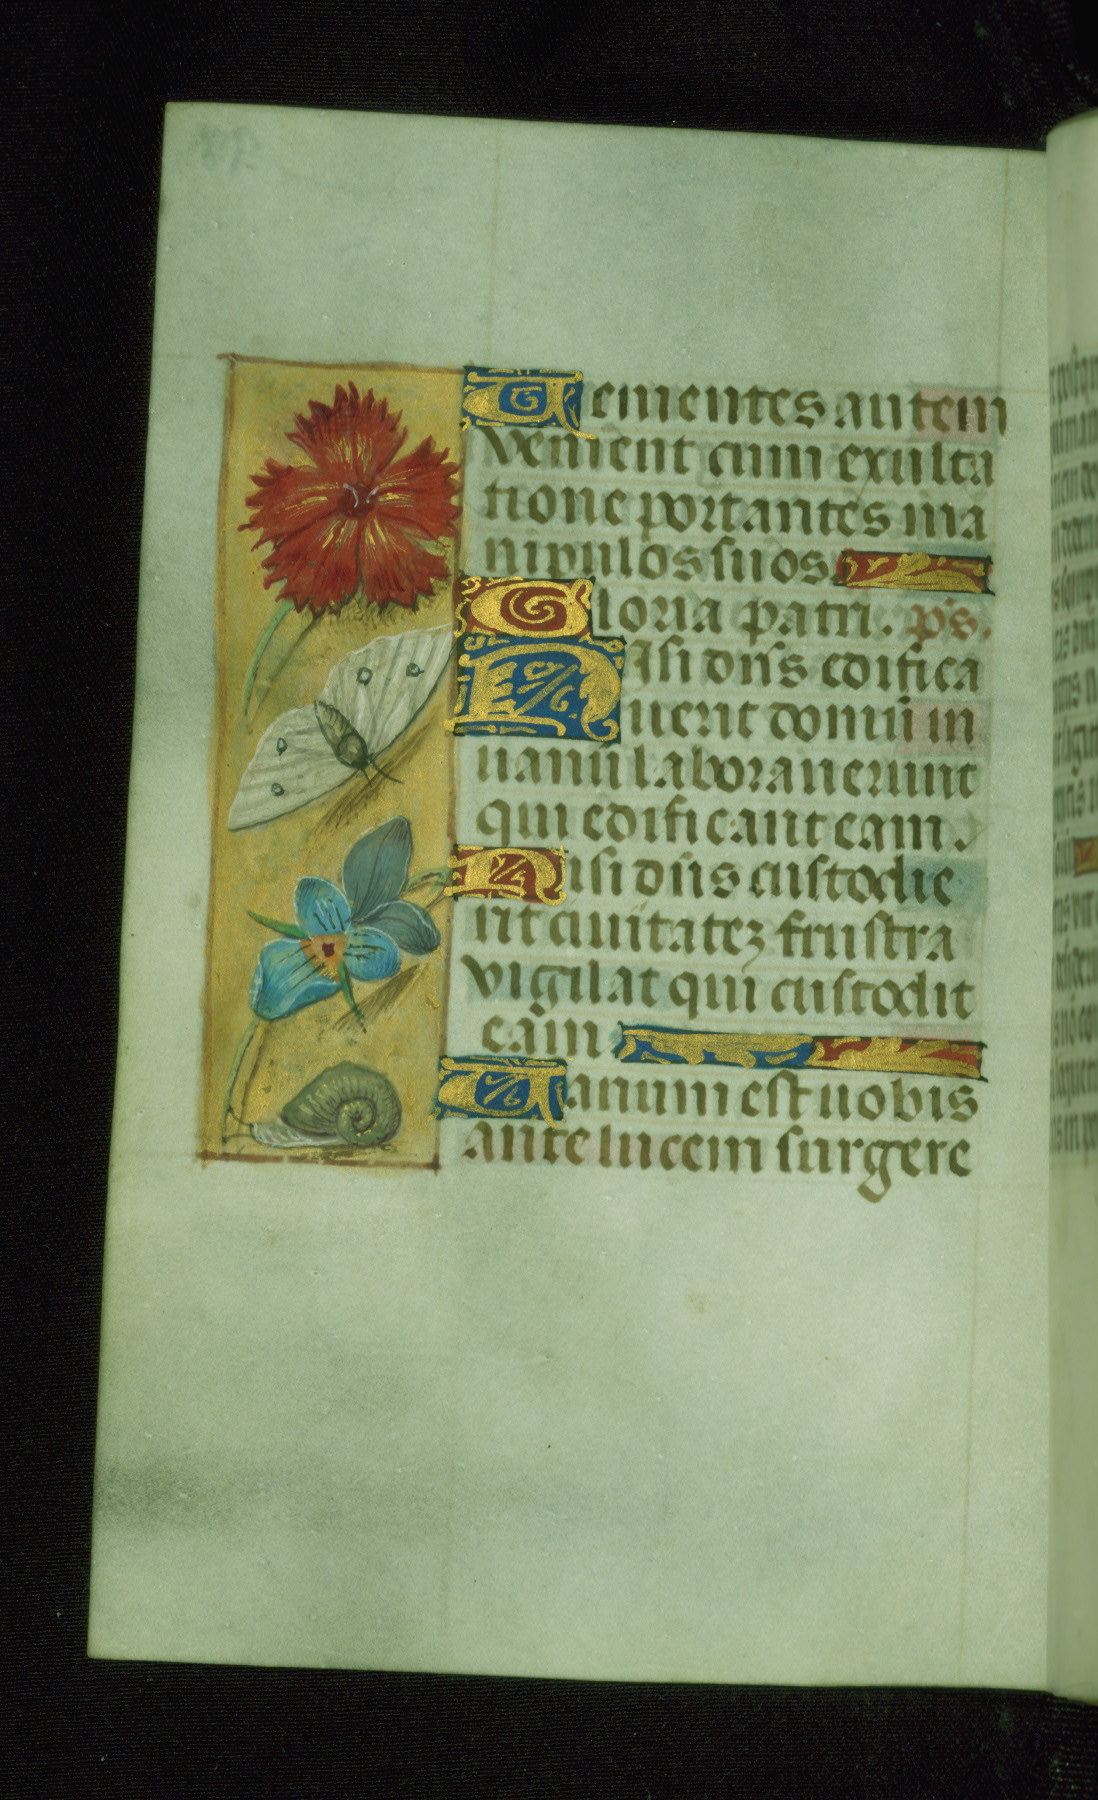 Uenientes autem
venient cum exulta
tione portantes ma
nipulos suos
Gloria patri. ps.
Nisi dñs edifica
uerit domũ in
uanũ laborauerunt
qui edificant eam.
Nisi dñs custodie
rit ciuitatez frustra
vigilat qui custodit
eam.
Uanum est uobis
ante lucem surgere